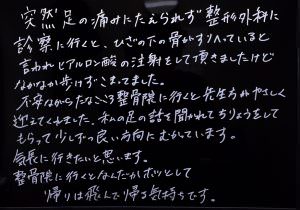 突然足の痛みにたえられず整形外科に
診察に行くと、ひざの下の骨がすりへっていると
言われヒアルロン酸の注射をして頂きましたけど
なかなか歩けずこまってました。
不安ながらたなごころ整骨院に行くと先生方がやさしく
迎えてくれました、私の足の話を聞かれてちりょうをして
もらって少しずつ良い方向にむかています。
気長に行きたいと思います。
整骨院に行くとなんだかホッとして
帰りは飛んで帰る気持ちです。